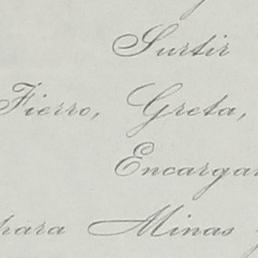 Surtir
Fierro, Greta,
Encargar
para Minas y